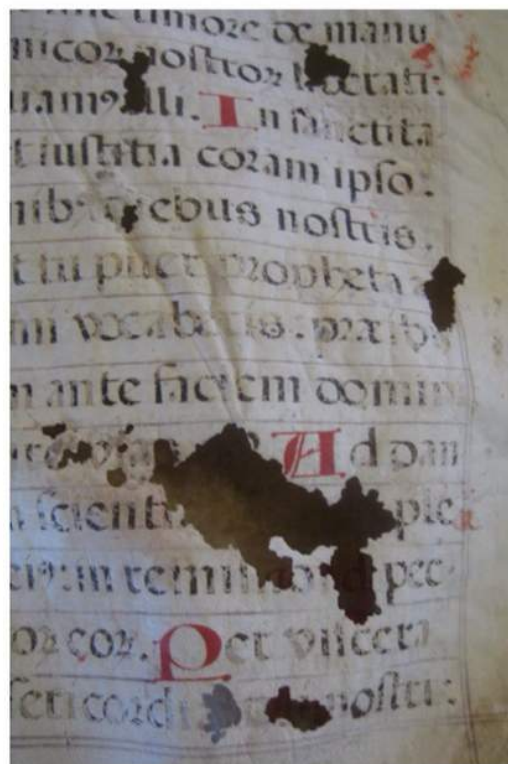 timore de manu
nicoꝝ nostroꝝ liberati:
illi. In sanctita
t iustitia coram ipso:
nib⁹ diebus nostris.
t tu puer propheta
vocaberis: preibis
ante faciem domini
Ad dan
scienti ple
ei⁹ in remissione pec
oꝝ eoꝝ. Per viscera
sericordi nostri: